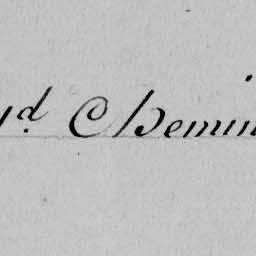 yd. Chemin